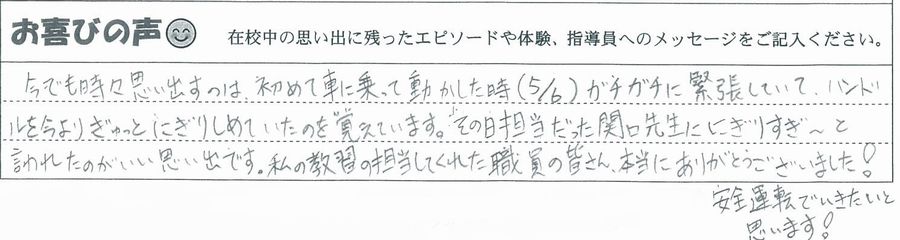 お喜びの声 在校中の思い出に残ったエピソードや体験、指導員へのメッセージをご記入ください。
今でも時々思い出すのは、初めて車に乗って動かした時(5/6)ガチガチに緊張していて、ハンド
ルを今よりぎゅっとにぎりしめていたのを覚えています。その日担当だった関口先生ににぎりすぎ~と
言われたのがいい思い出です。私の教習の担当してくれた職員の皆さん、本当にありがとうございました!
安全運転でいきたいと
思います!